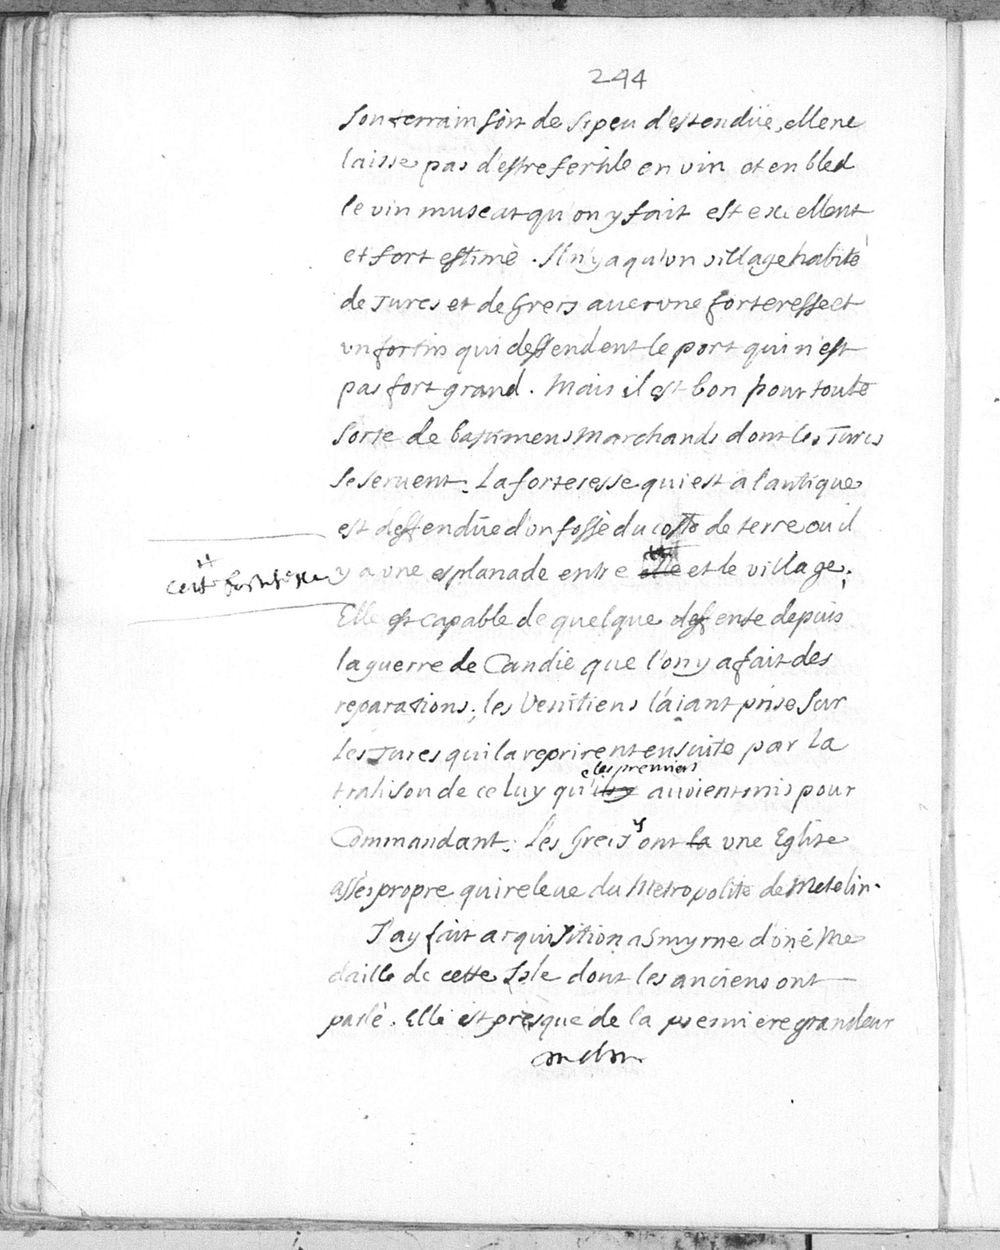 244
son terrain soit de si peu d'estendüe, elle ne
laisse pas d'estre fertile en vin et en bled
le vin muscat qu'on y fait est excellent
et fort estimé. Il n'y a qu'un village habité
de Turcs et de Grecs avec une forteresse et
un fortin qui deffendent le port qui n'est
pas fort grand. Mais il est bon pour toute
sorte de bastimens marchands dont les Turcs
se servent. La forteresse qui est a l'antique
est deffendüe d'un fossé du costé de terre ou il
cette forteresse
y a une esplanade entre elle et le village.
Elle est capable de quelque defense depuis
la guerre de Candie que l'on y a fait des
reparations, les Venitiens l'aiant prise sur
les Turcs qui la reprirent ensuite par la
les premiers
trahison de celuy qu'ils y avoient mis pour
Commandant. Les Grecs y ont la une Eglise
assés propre qui releve du Metropolite de Metelin.
J'ay fait acquisition a Smyrne d'une Me
daille de cette Isle dont les anciens ont
parlé. Elle est presque de la premiere grandeur